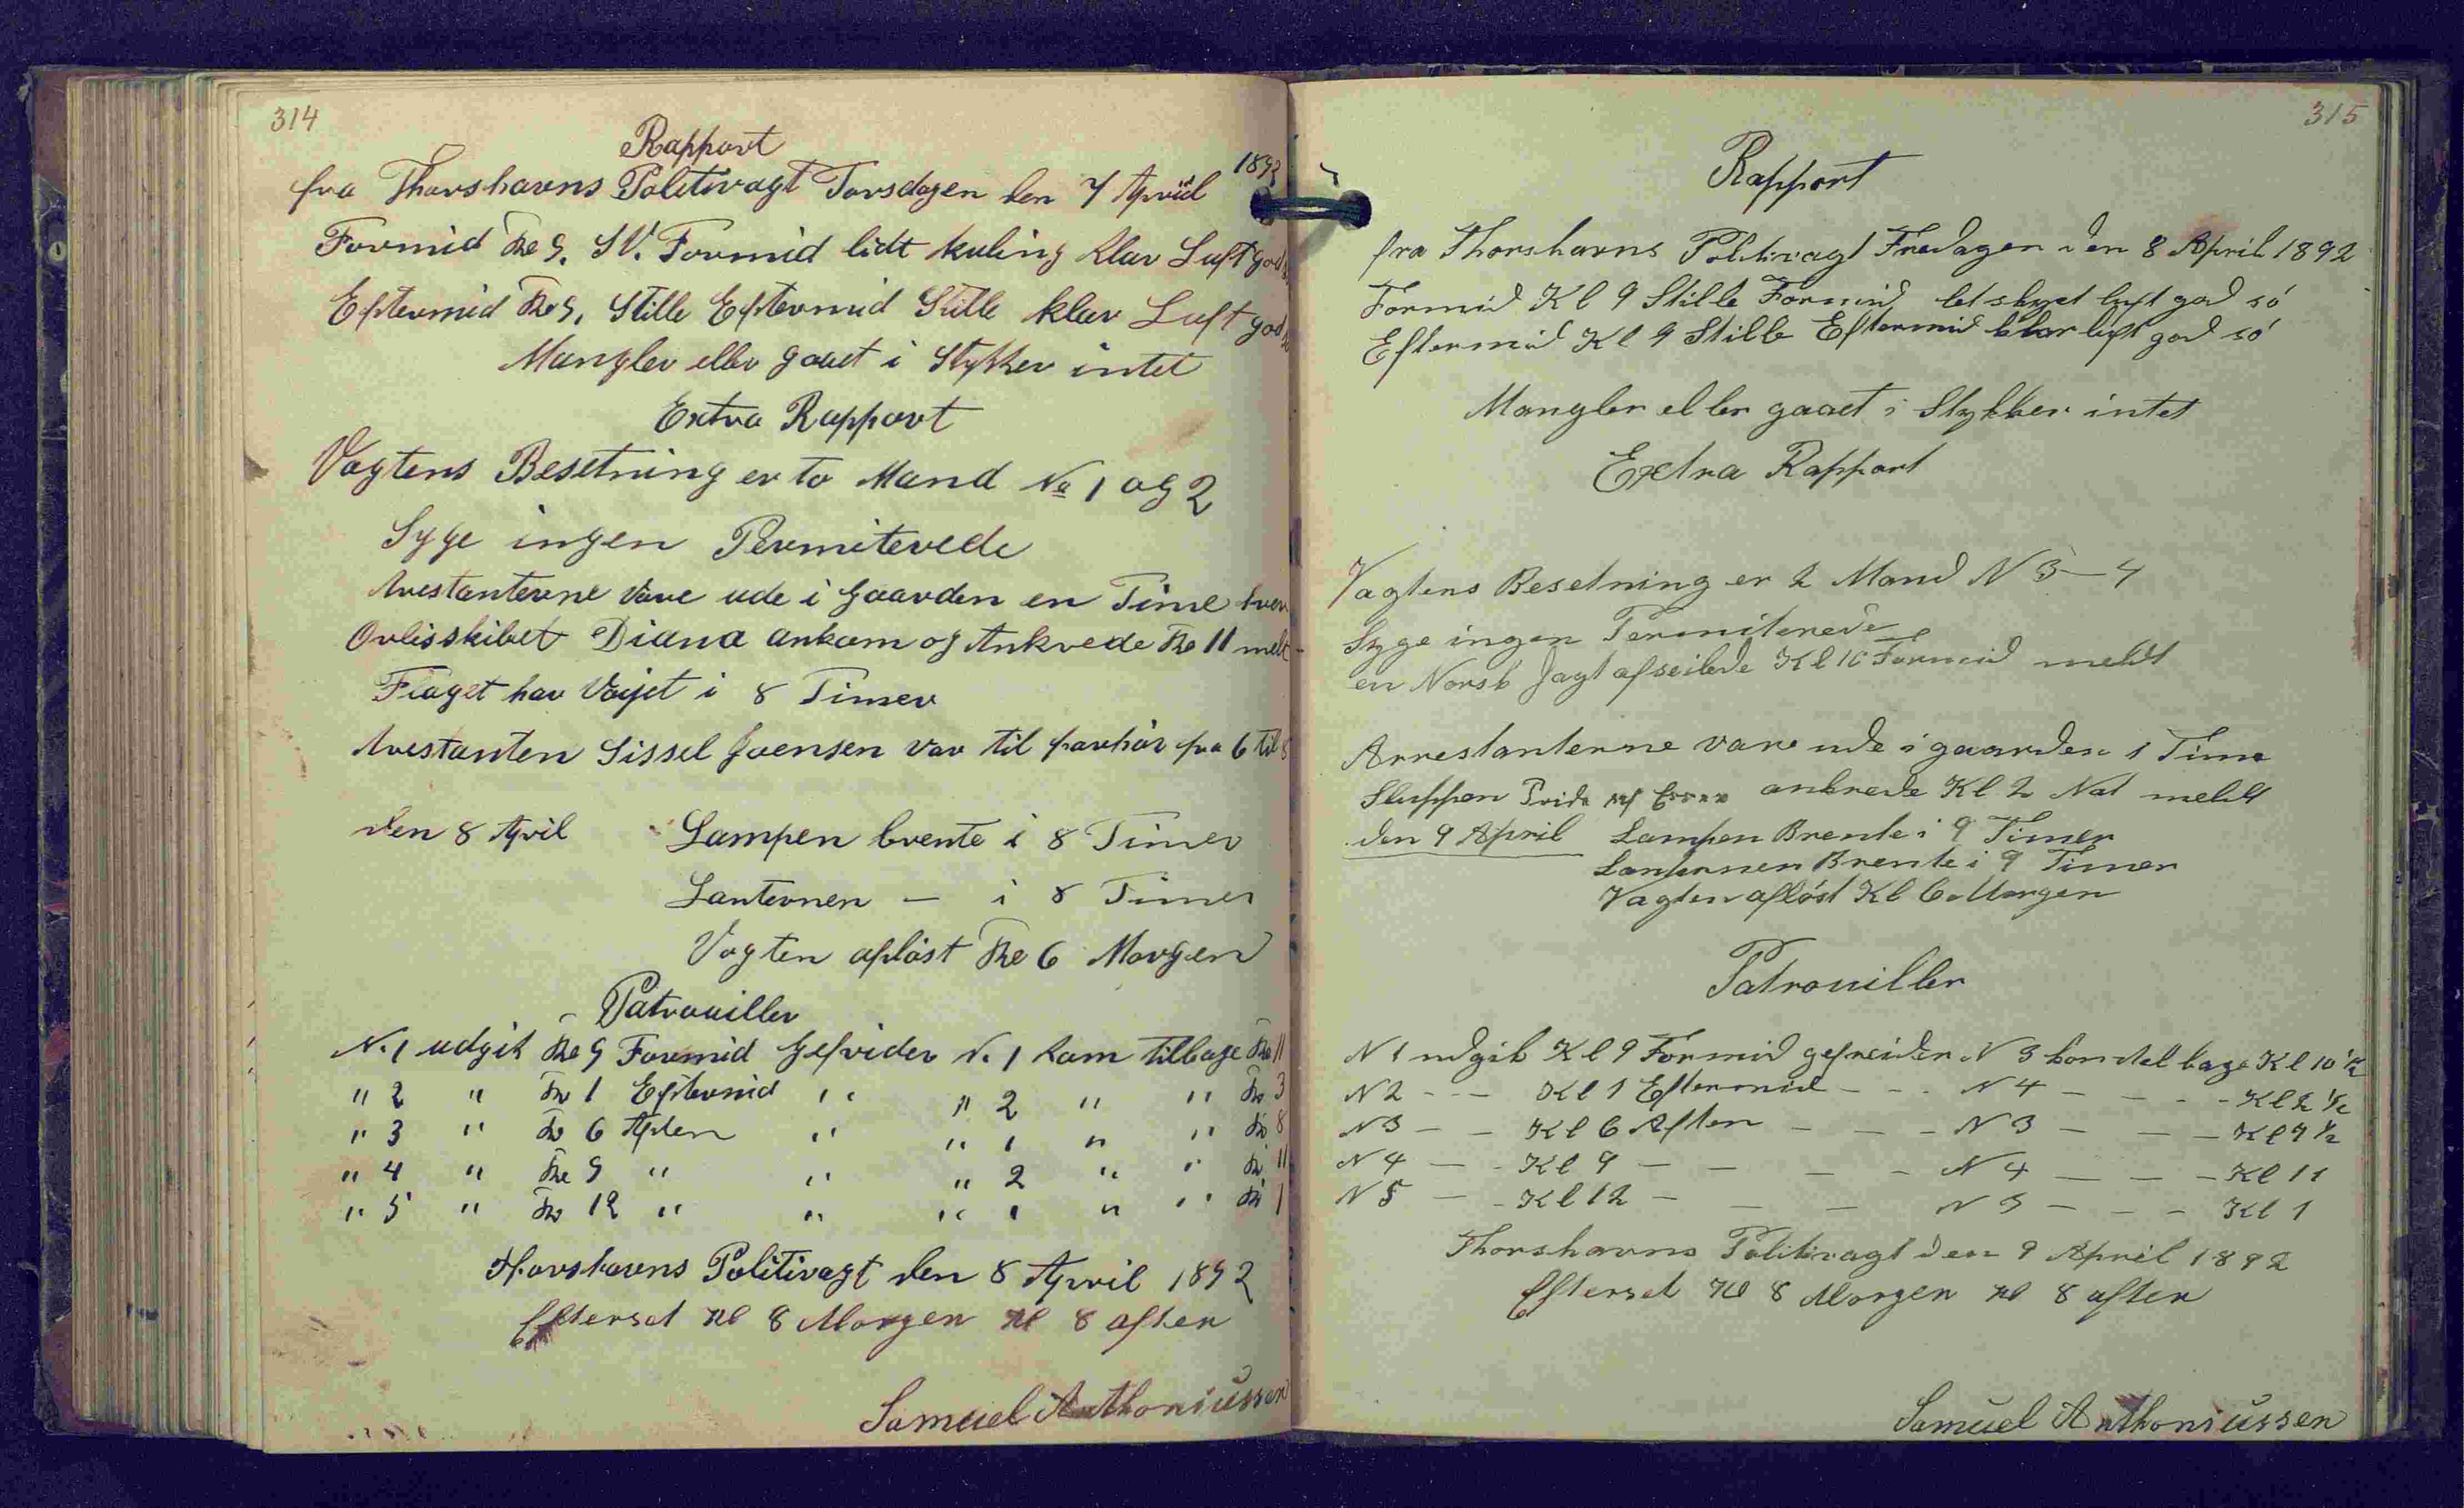 314
Rapport
fra Thorshavns Politivagt Torsdagen den 7 April 1892
Formid Kl 9. SV. Formid lidt kuling klar Luft god
Eftermid Kl 9. Stille Eftermid Stille klar Luft god
Mangler eller gaaet i Stykker intet
Extra Rapport
Vagtens Besetning er to Mand No 1 og 2
Syge ingen Permiterede
Arestanterne vare ude i Gaarden en Time hver
Orlisskibet Diana ankom og Ankrede Kl 11 meldt
Flaget har Vajet i 8 Timer
Arestanten Sissel Joensen var til forhör fra 6 til 8
den 8 April Lampen brente i 8 Timer
Lanternen — i 8 Timer
Vagten aflöst Kl 6 Morgen
Patrouiller
N. 1 udgik Kl 9 Formid Gefrider N. 1 kom tilbage Kl 11
" 2 " Kl 1 Eftermid " " 2 " " Kl 3
" 3 " Kl 6 Aften " " 1 " " Kl 8
" 4 " Kl 9 " " " 2 " " Kl 11
" 5 " Kl 12 " " " 1 " " Kl 1
Thorshavns Politivagt den 8 April 1892
Efterset Kl 8 Morgen Kl 8 aften
Samuel Anthoniüssen
315
Rapport
fra Thorshavns Politivagt Fredagen den 8 April 1892
Formid Kl 9 Stille Formid let skyet luft god só
Eftermid Kl 9 Stille Eftermid klar luft god só
Mangler eller gaaet i Stykker intet
Extra Rapport
Vagtens Besetning er 2 Mand N 3 — 4
Syge ingen Permiterede
en Norsk Jagt afseilede Kl 10 Formid meldt
Arrestanterne vare ude i gaarden 1 Time
Sluppen Pride af ankrede Kl 2 Nat meldt
den 9 April Lampen Brente i 9 Timer
Lanternen Brente i 9 Timer
Vagten aflóst Kl 6 Morgen
Patrouiller
N 1 udgik Kl 9 Formid gefreider N 3 kom tel bage Kl 10 1/2
N 2 - - - Kl 1 Eftermid - - - N 4 - - - - Kl 2 1/2
N 3 - - Kl 6 Aften - - - N 3 - - - Kl 7 1/2
N 4 - - Kl 9 - - - - N 4 - - - Kl 11
N 5 - - Kl 12 - - - N 3 - - - Kl 1
Thorshavns Politivagt den 9 April 1892
Efterset Kl 8 Morgen Kl 8 aften
Samuel Anthoniüssen